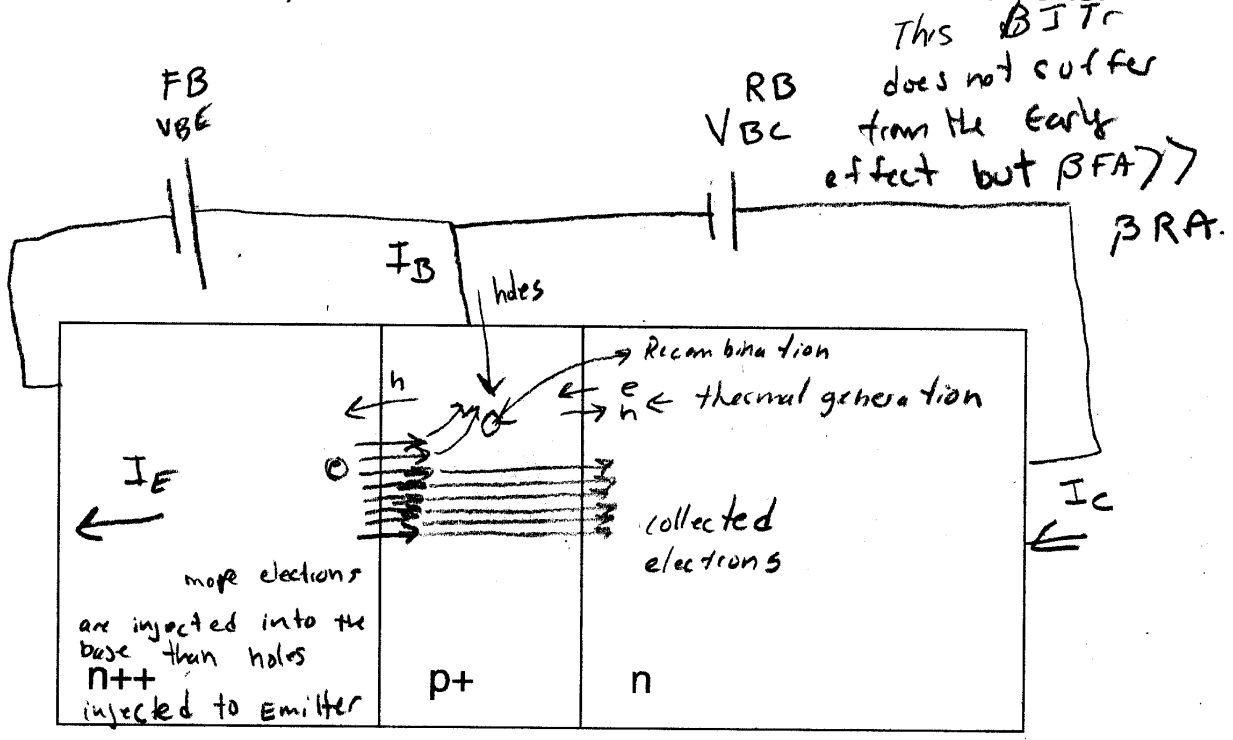 This BJTr
does not suffer
from the Early
effect but βFA >>
βRA.
FB
VBE
RB
VBC
IB
holes
Recombination
h
e
h ← thermal generation
e
IE
IC
collected
electrons
more electrons
are injected into the
base than holes
n++
injected to Emitter
p+
n